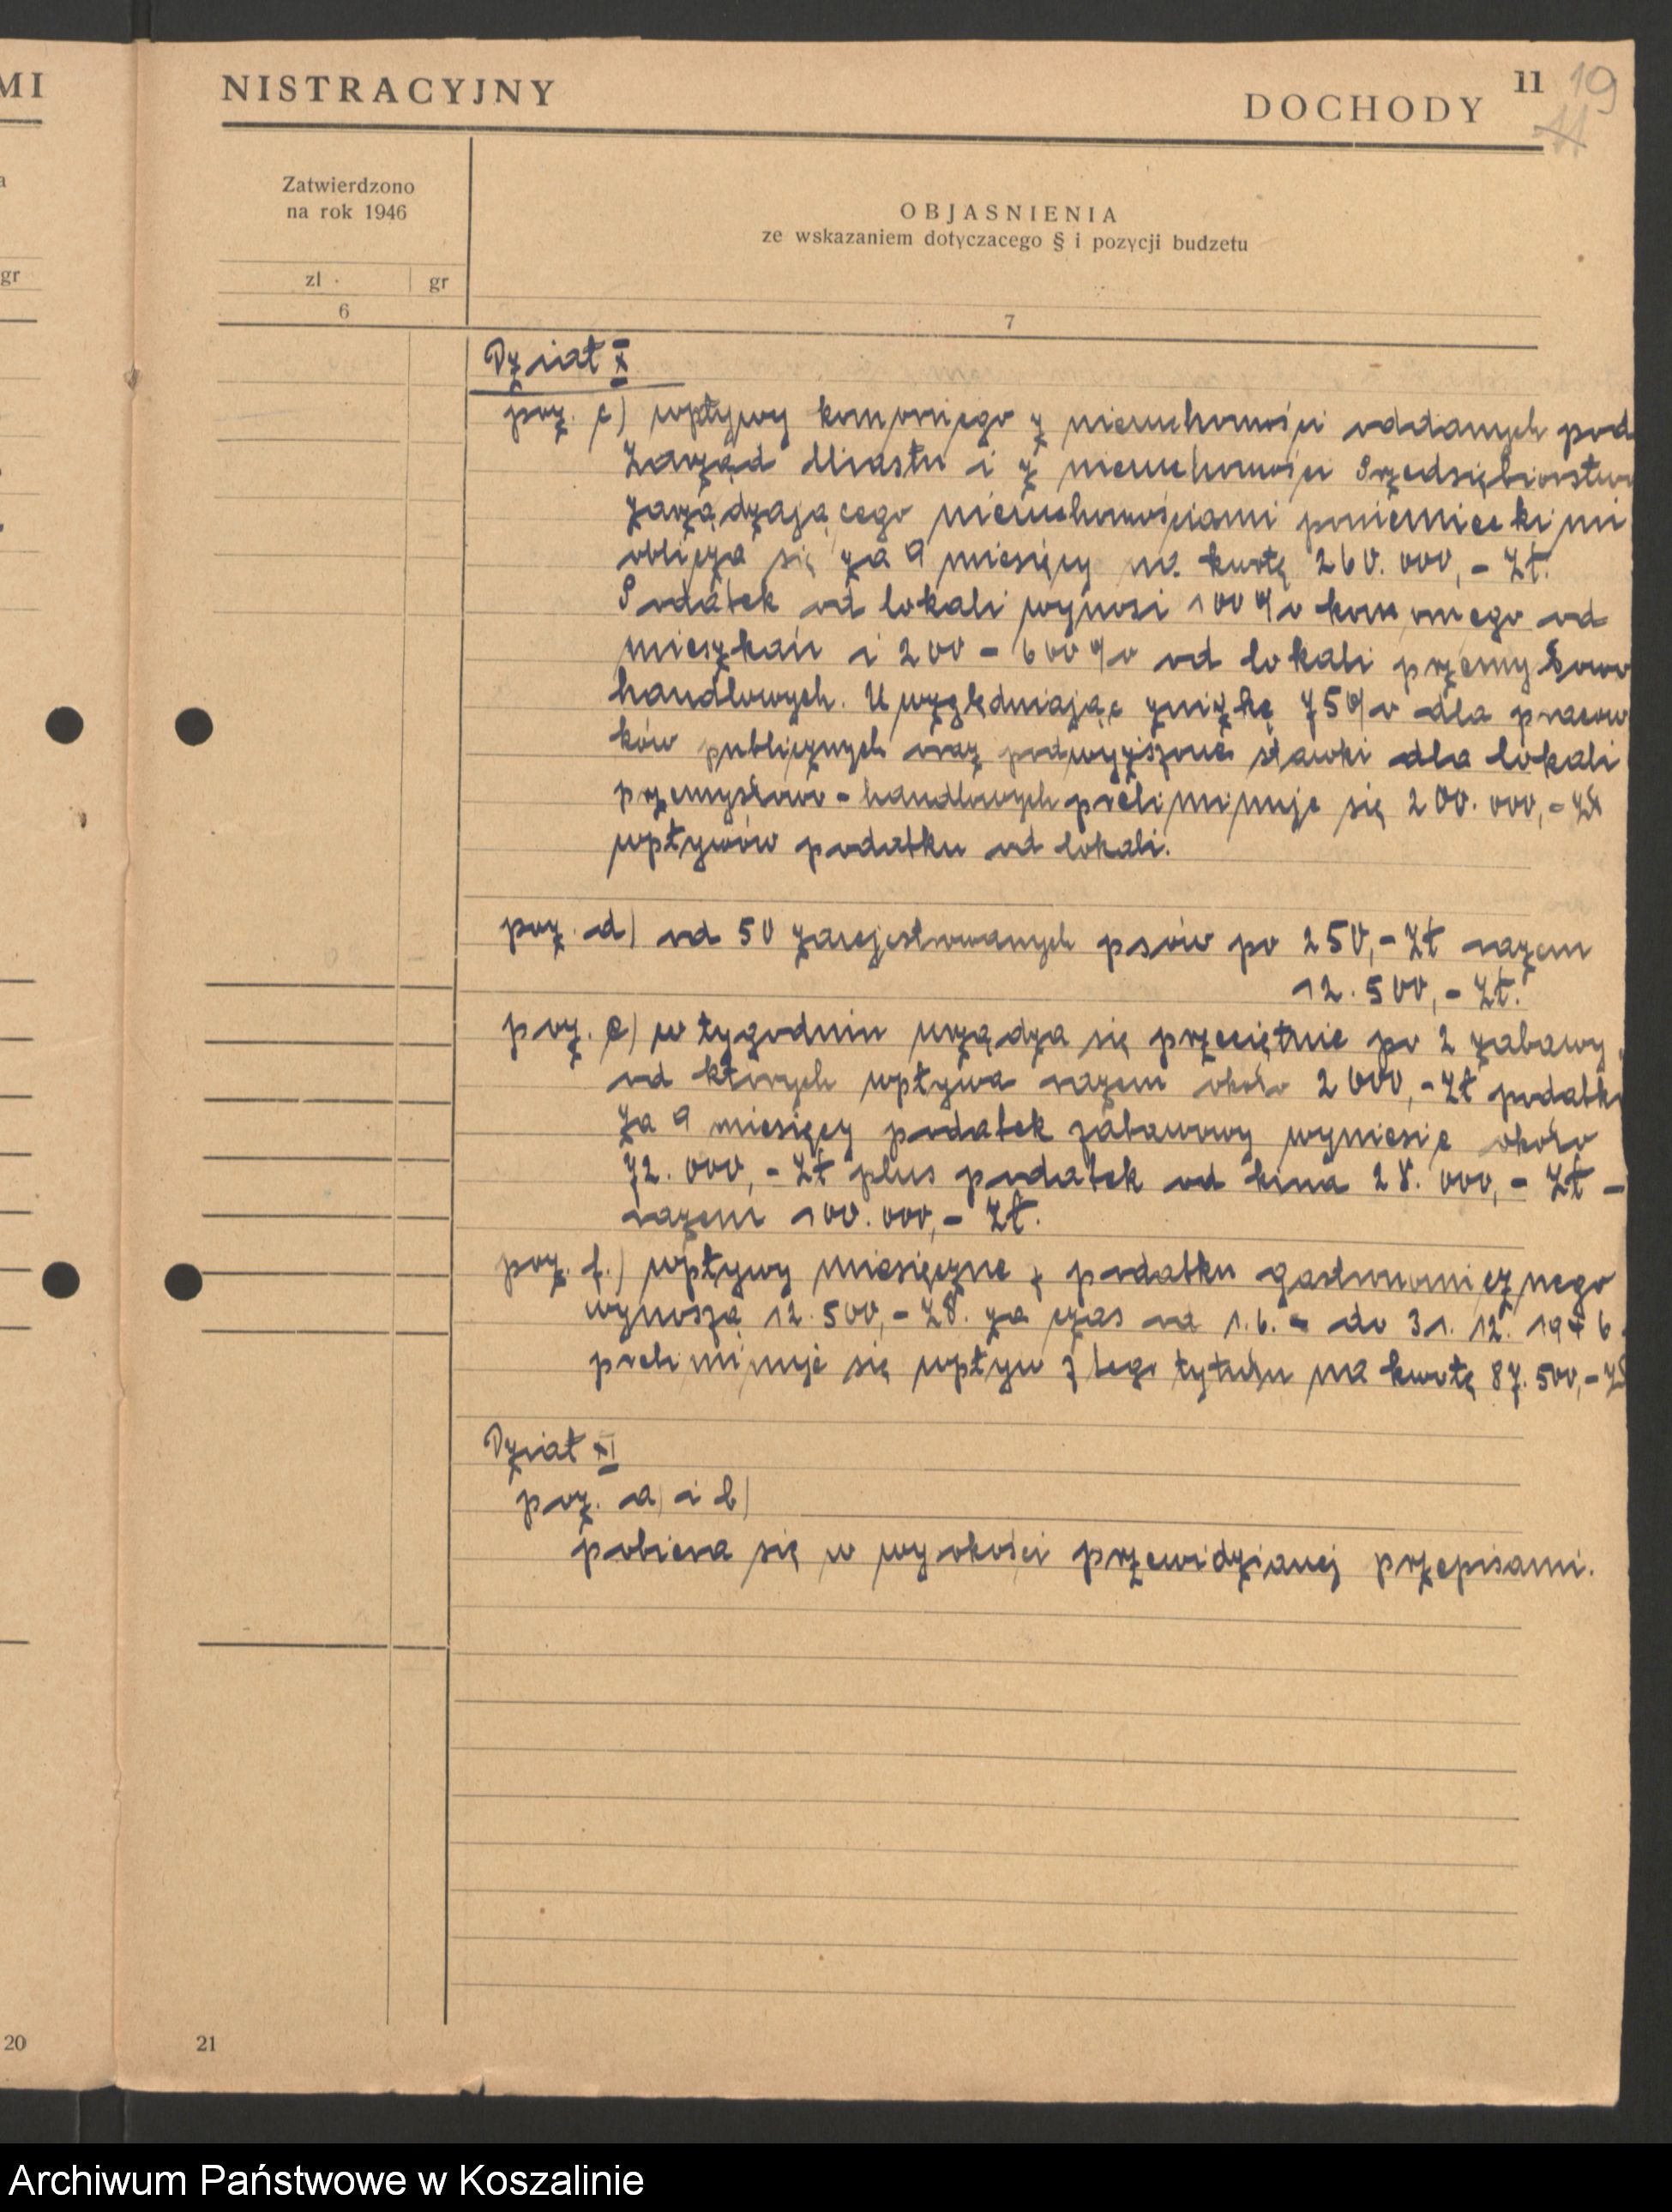 MI
NISTRACYJNY
11
19
DOCHODY
11
a
Zatwierdzono
na rok 1946
OBJASNIENIA
ze wskazaniem dotyczacego § i pozycji budzetu
gr
zl
gr
6
7
Dział X
poz. c) wpływy komornego z nieruchomości oddanych pod
Zarząd Miasta i z nieruchomości Przedsiębiorstwa
zarządzającego nieruchomościami poniemieckimi
oblicza się za 9 miesięcy na kwotę 260.000,- Zł.
Podatek od lokali wynosi 100% komornego od
mieszkań i 200 - 600% od lokali przemysłowo
handlowych. Uwzględniając zniżkę 75% dla pracow
ków publicznych oraz podwyższone stawki dla lokali
przemysłowo - handlowych preliminuje się 200.000,- Zł
wpływów podatku od lokali.
poz. d) od 50 zarejestrowanych psów po 250,- Zł razem
12.500,- Zł.
poz. e) w tygodniu urządza się przeciętnie po 2 zabawy,
od których wpływa razem około 2000,- Zł podatku
Za 9 miesięcy podatek zabawowy wyniesie około
72.000,- Zł plus podatek od kina 28.000,- Zł -
razem 100.000,- Zł.
poz. f.) wpływy miesięczne z podatku gastronomicznego
wynoszą 12.500,- Zł. za czas od 1.6. - do 31.12.1946.
preliminuje się wpływ z tego tytułu na kwotę 87.500,- Zł
Dział XI
poz. a) i b)
pobiera się w wysokości przewidzianej przepisami.
20
21
Archiwum Państwowe w Koszalinie